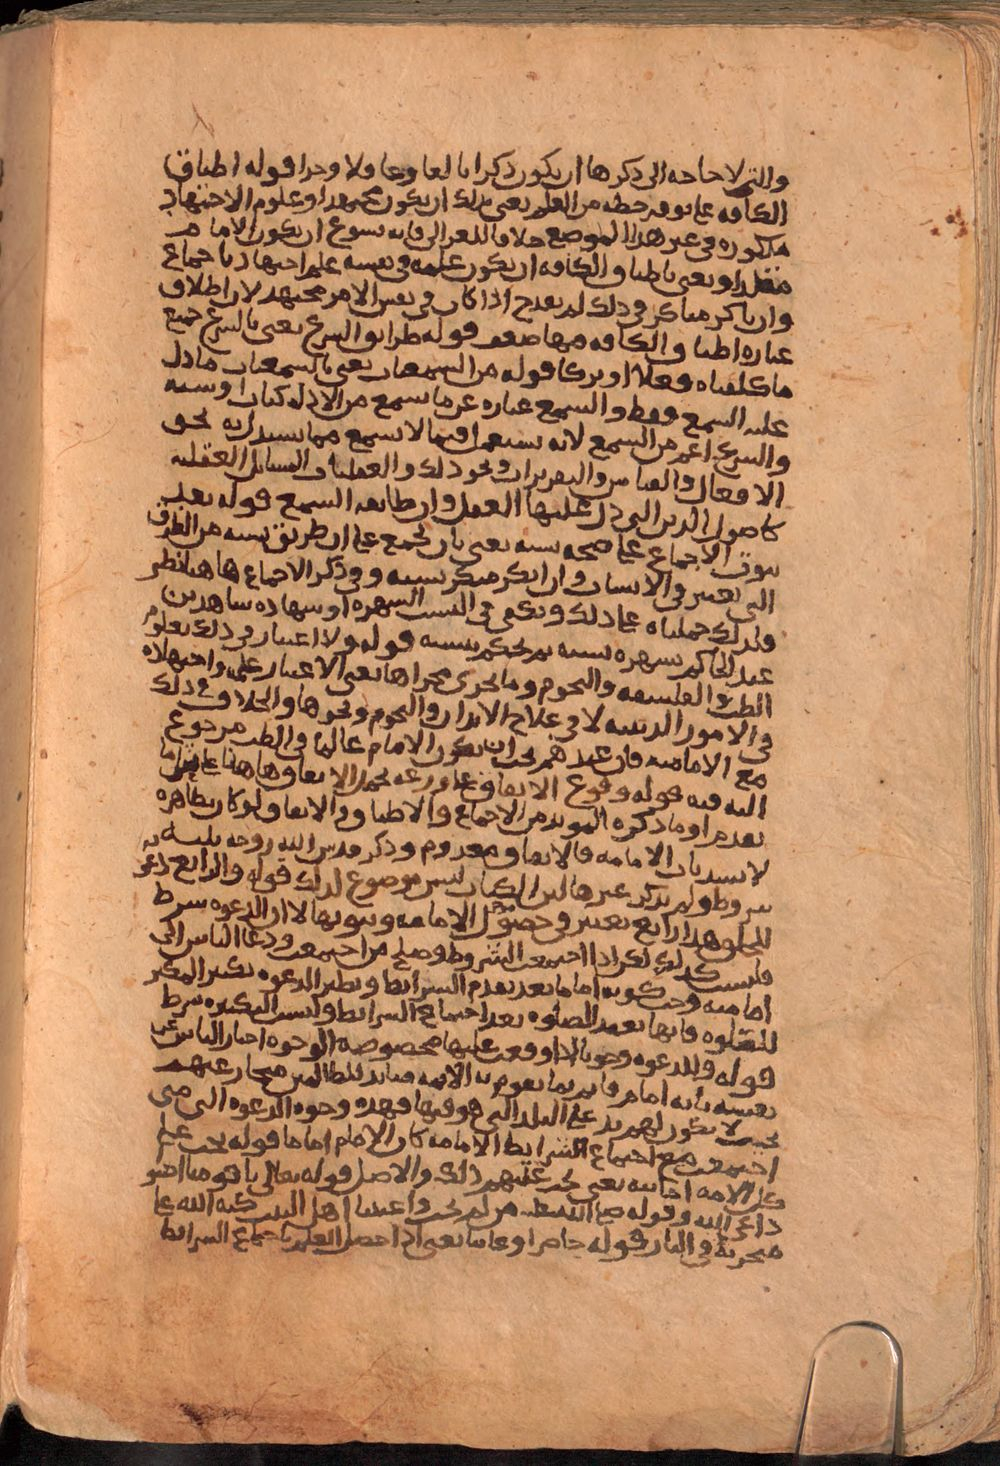 والتي لا حاجه الى ذكرها ان يكون ذكرا بالغا عاقلا وحرا قوله اطباق
الكافه على توفر حظه من العلم يعني بذلك ان يكون مجتهدا وعلوم الاجتهاد
مذكوره في غير هذا الموضع خلافا للغزالي فانه يسوغ ان يكون الامام
مقلدا ويعني باطباق الكافه ان يكون علمه في نفسه علم اجتهاد باجماع
وان ناكر مناكر في ذلك لم يقدح اذا كان في نفس الامر مجتهد لان اطلاق
عباره اطباق الكافه فيها ضعف قوله طرائق الشرع يعني بالشرع جميع
ما كلفناه فعلا او تركا قوله من السمعيات يعني بالسمعيات ما دل
عليه السمع فقط والسمع عباره عن ما يسمع من الادله كتاب او سنه
والشرع اعم من السمع لانه يستعمل فيما لا يسمع مما يستدل به نحو
الافعال والقياس والتقريرات ونحو ذلك والعقليات المسائل العقليه
كاصول الدين التي دل عليها العقل وان طابقه السمع قوله بعد
ثبوت الاجماع على صحه نسبه يعني بان يجمع على ان طريق نسبه من الطرق
التي تعتبر في الانساب وان انكر منكر نسبه وفي ذكر الاجماع هاهنا نظر
ولذلك حملناه على ذلك ويكفي في النسب الشهره او شهاده شاهدين
عند الحاكم بشهره نسبه ثم يحكم بنسبه قوله ولا اعتبار في ذلك بعلوم
الطب والفلسفه والنجوم وما يجري مجراها يعني الاعتبار علمه واجتهاده
في الامور الدينيه لا في علاج الابدان والنجوم ونحوها والخلاف في ذلك
مع الاماميه فان عندهم يجب ان يكون الامام عالما في الطب مرجوع
اليه فيه قوله وقوع الاتفاق على ورعه يحمل الاتفاق هاهنا على
تقدم او ما ذكره المويد من الاجماع والاطباق والاتفاق لو كان بظاهره
لانسد باب الامامه فالاتفاق معدوم وذكر قدس الله روحه
شروط ولم يذكر غيرها لان الكتاب ليس موضوع لذلك قوله والرابع دعا
الخلق هذا رابع يعتبر في حصول الامامه وثبوتها لا ان الدعوه شرط
فليست كذلك لكن اذا اجتمعت الشروط وصلح من اجتمعت ودعا الناس الى
امامته وجب كونه اماما بعد تقدم الشرائط ونظير الدعوه تكبير المكبر
للصلوه فانها تعقد الصلوه بعد اجتماع الشرائط وليست التكبيره شرط
قوله وللدعوه وجوبا اذا وقعت عليها مخصوصه الوجوه اخبار الناس عن
نفسه بانه امام قائم بما يقوم به الائمه مباين للظالمين منحاز عنهم
بحيث لا يكون لهم يد على البلد التي هو فيها فهذه وجوه الدعوه التي متى
اجتمعت مع اجتماع الشرائط الامامه كان الامام اماما قوله يجب على
كل الامه اجابته يعني يجب عليهم ذلك والاصل قوله تعالى يا قومنا اجيبوا
داعي الله وقوله صلى الله عليه من لم يجب واعيتنا اهل البيت كبه الله على
منخريه في النار قوله حاضرا او غائبا يعني اذا حصل العلم باجتماع الشرائط